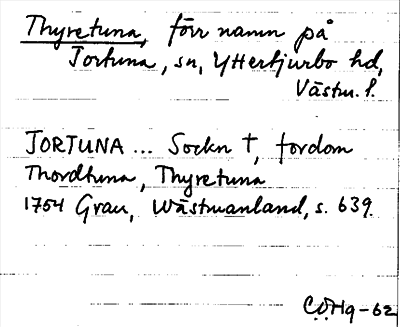 Thyretuna, förr namn på
Tortuna, sn, Yttertjurbo hd,
Västm. l.
TORTUNA ... Sockn †, fordom
Thordtuna, Thyretuna
1754 Grau, Wästmanland, s. 639.
C.O.Hg-62